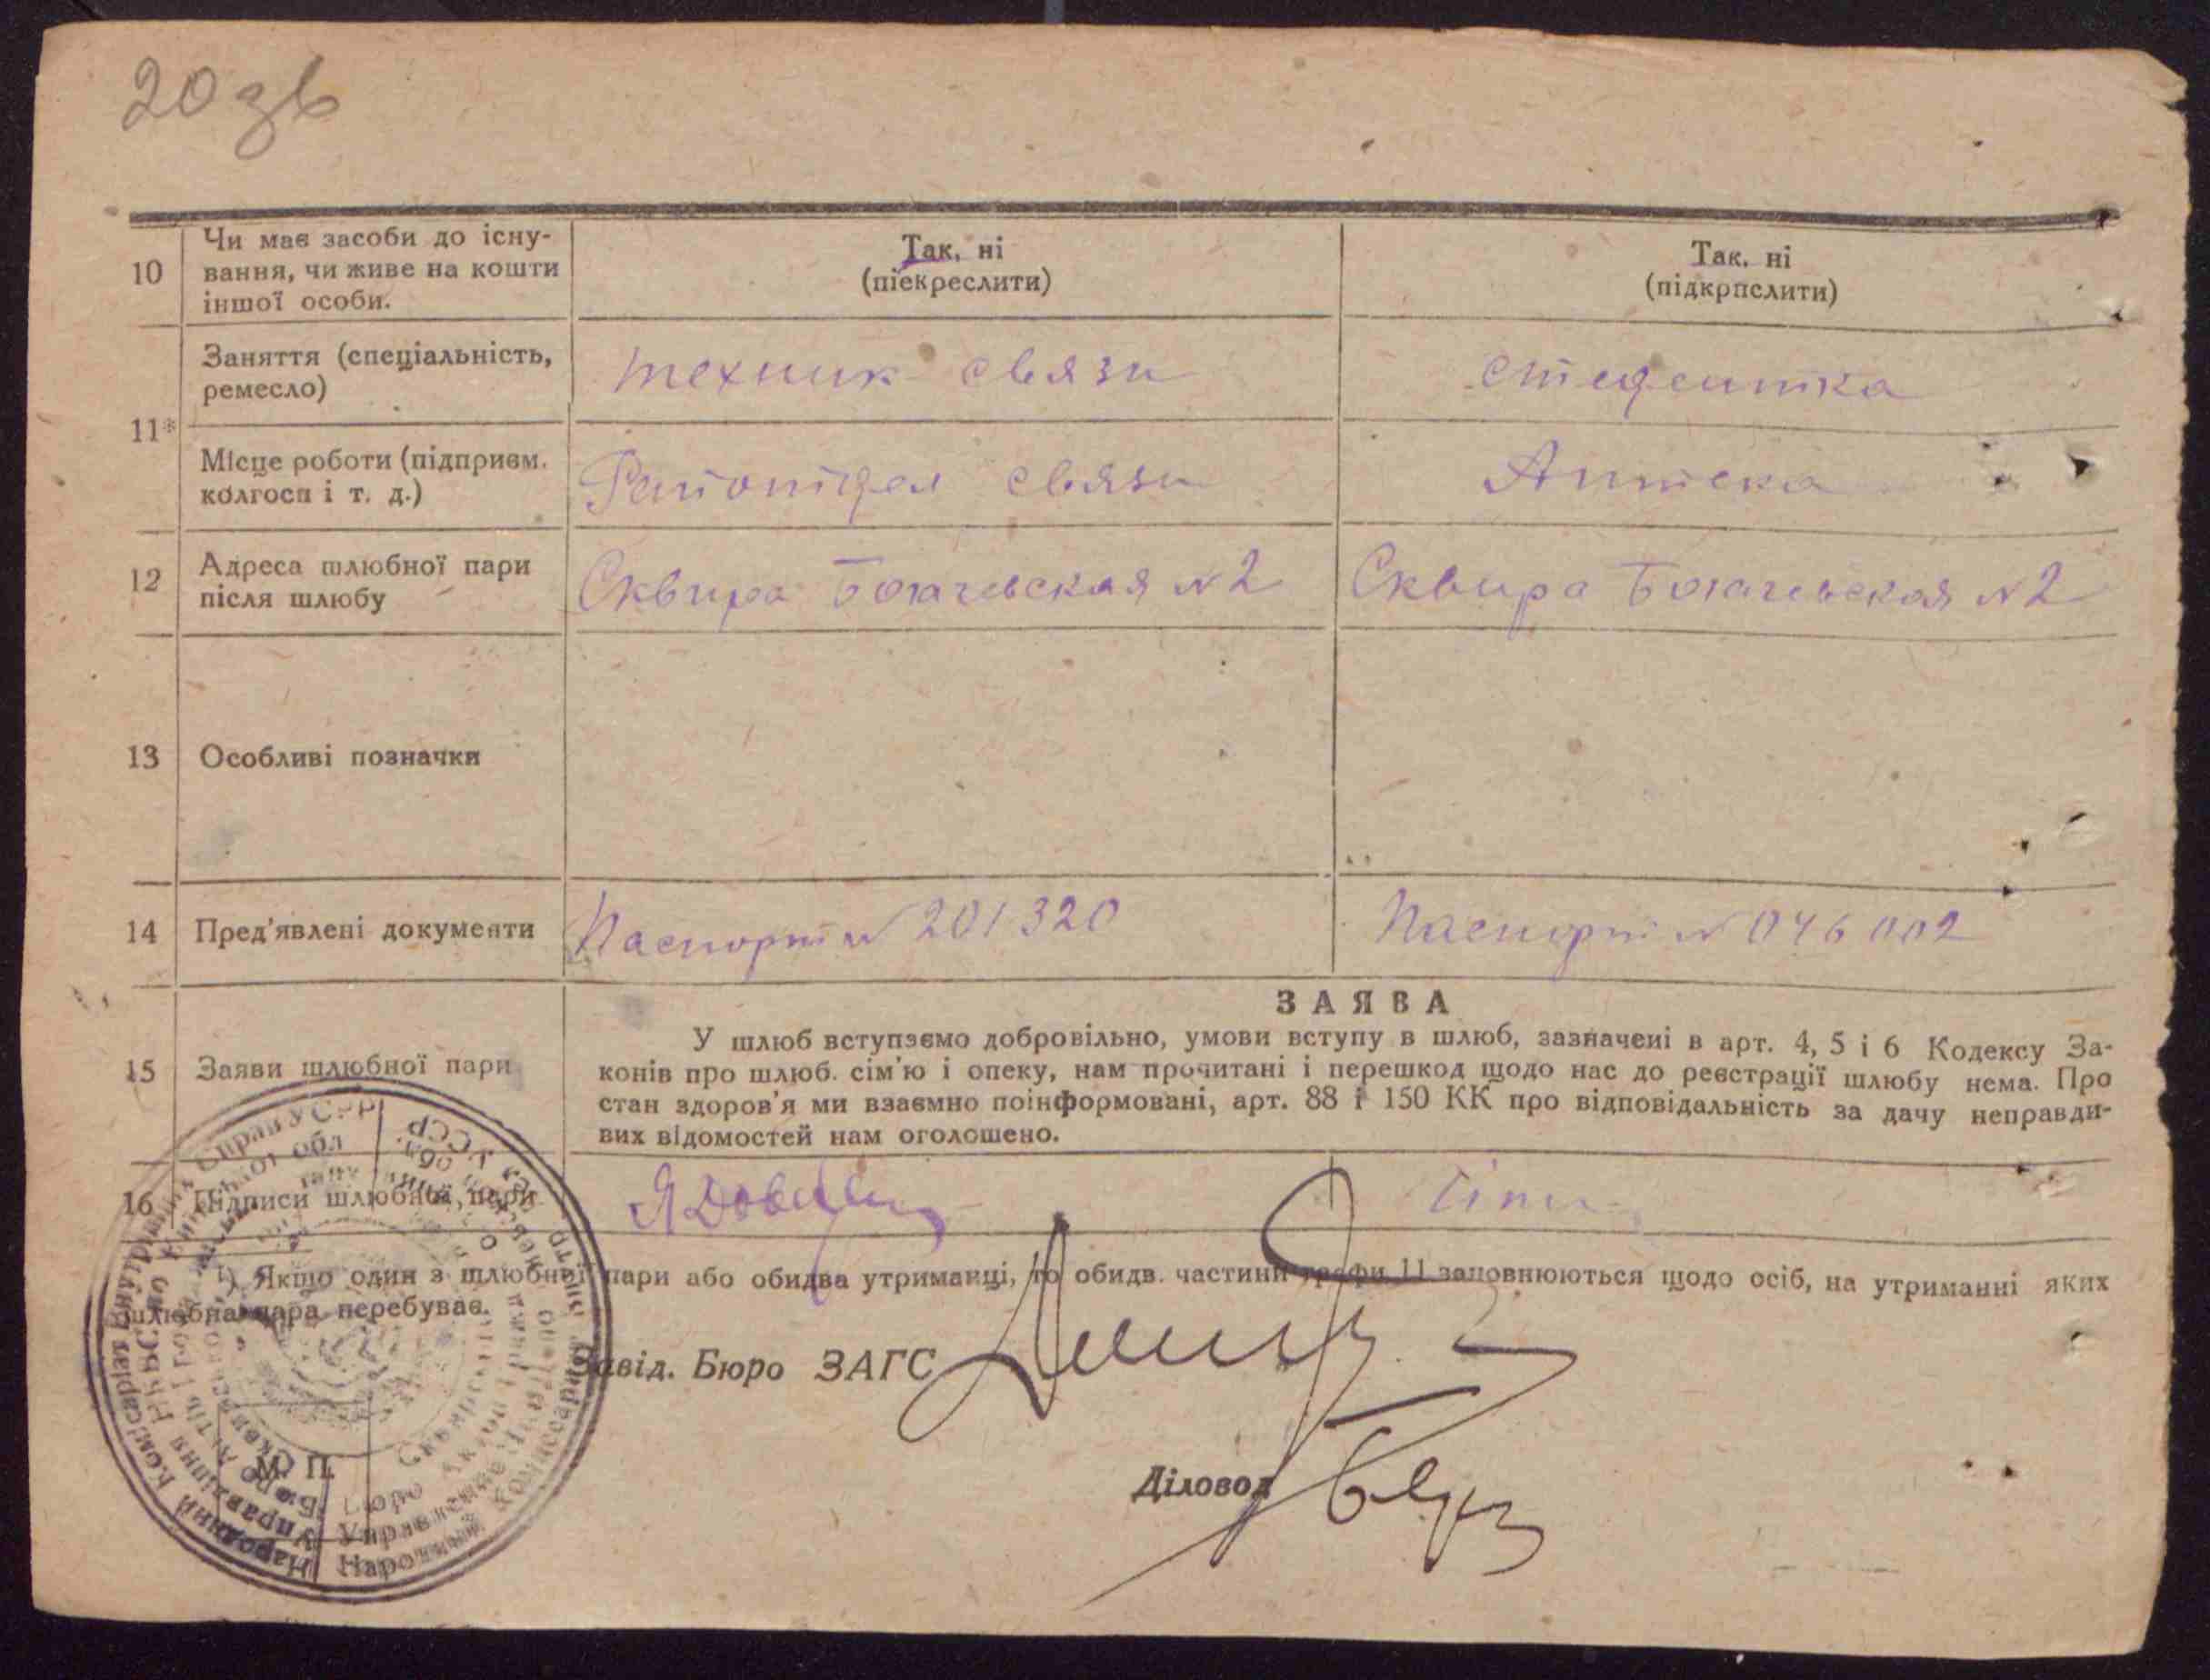 20 зв
10 Чи має засоби до існу- Так, ні Так, ні
вання, чи живе на кошти (піекреслити) (підкрпслити)
іншої особи.
Заняття (спеціальність, техник связи студентка
ремесло)
11*
Місце роботи (підприєм. связи Аптека
колгосп і т. д.)
12 Адреса шлюбної пари Сквира №2 Сквира №2
після шлюбу
13 Особливі позначки
14 Пред'явлені документи Паспорт № 201320 Паспорт № 046002
ЗАЯВА
15 Заяви шлюбної пари У шлюб вступаємо добровільно, умови вступу в шлюб, зазначені в арт. 4, 5 і 6 Кодексу За-
конів про шлюб. сім'ю і опеку, нам прочитані і перешкод щодо нас до реєстрації шлюбу нема. Про
стан здоров'я ми взаємно поінформовані, арт. 88 і 150 КК про відповідальність за дачу неправди-
вих відомостей нам оголошено.
16 Підписи шлюбної пари
*) Якщо один з шлюбної пари або обидва утриманці, то обидв. частини графи 11 заповнюються щодо осіб, на утриманні яких
шлюбна пара перебуває.
Завід. Бюро ЗАГС
М. П.
Діловод